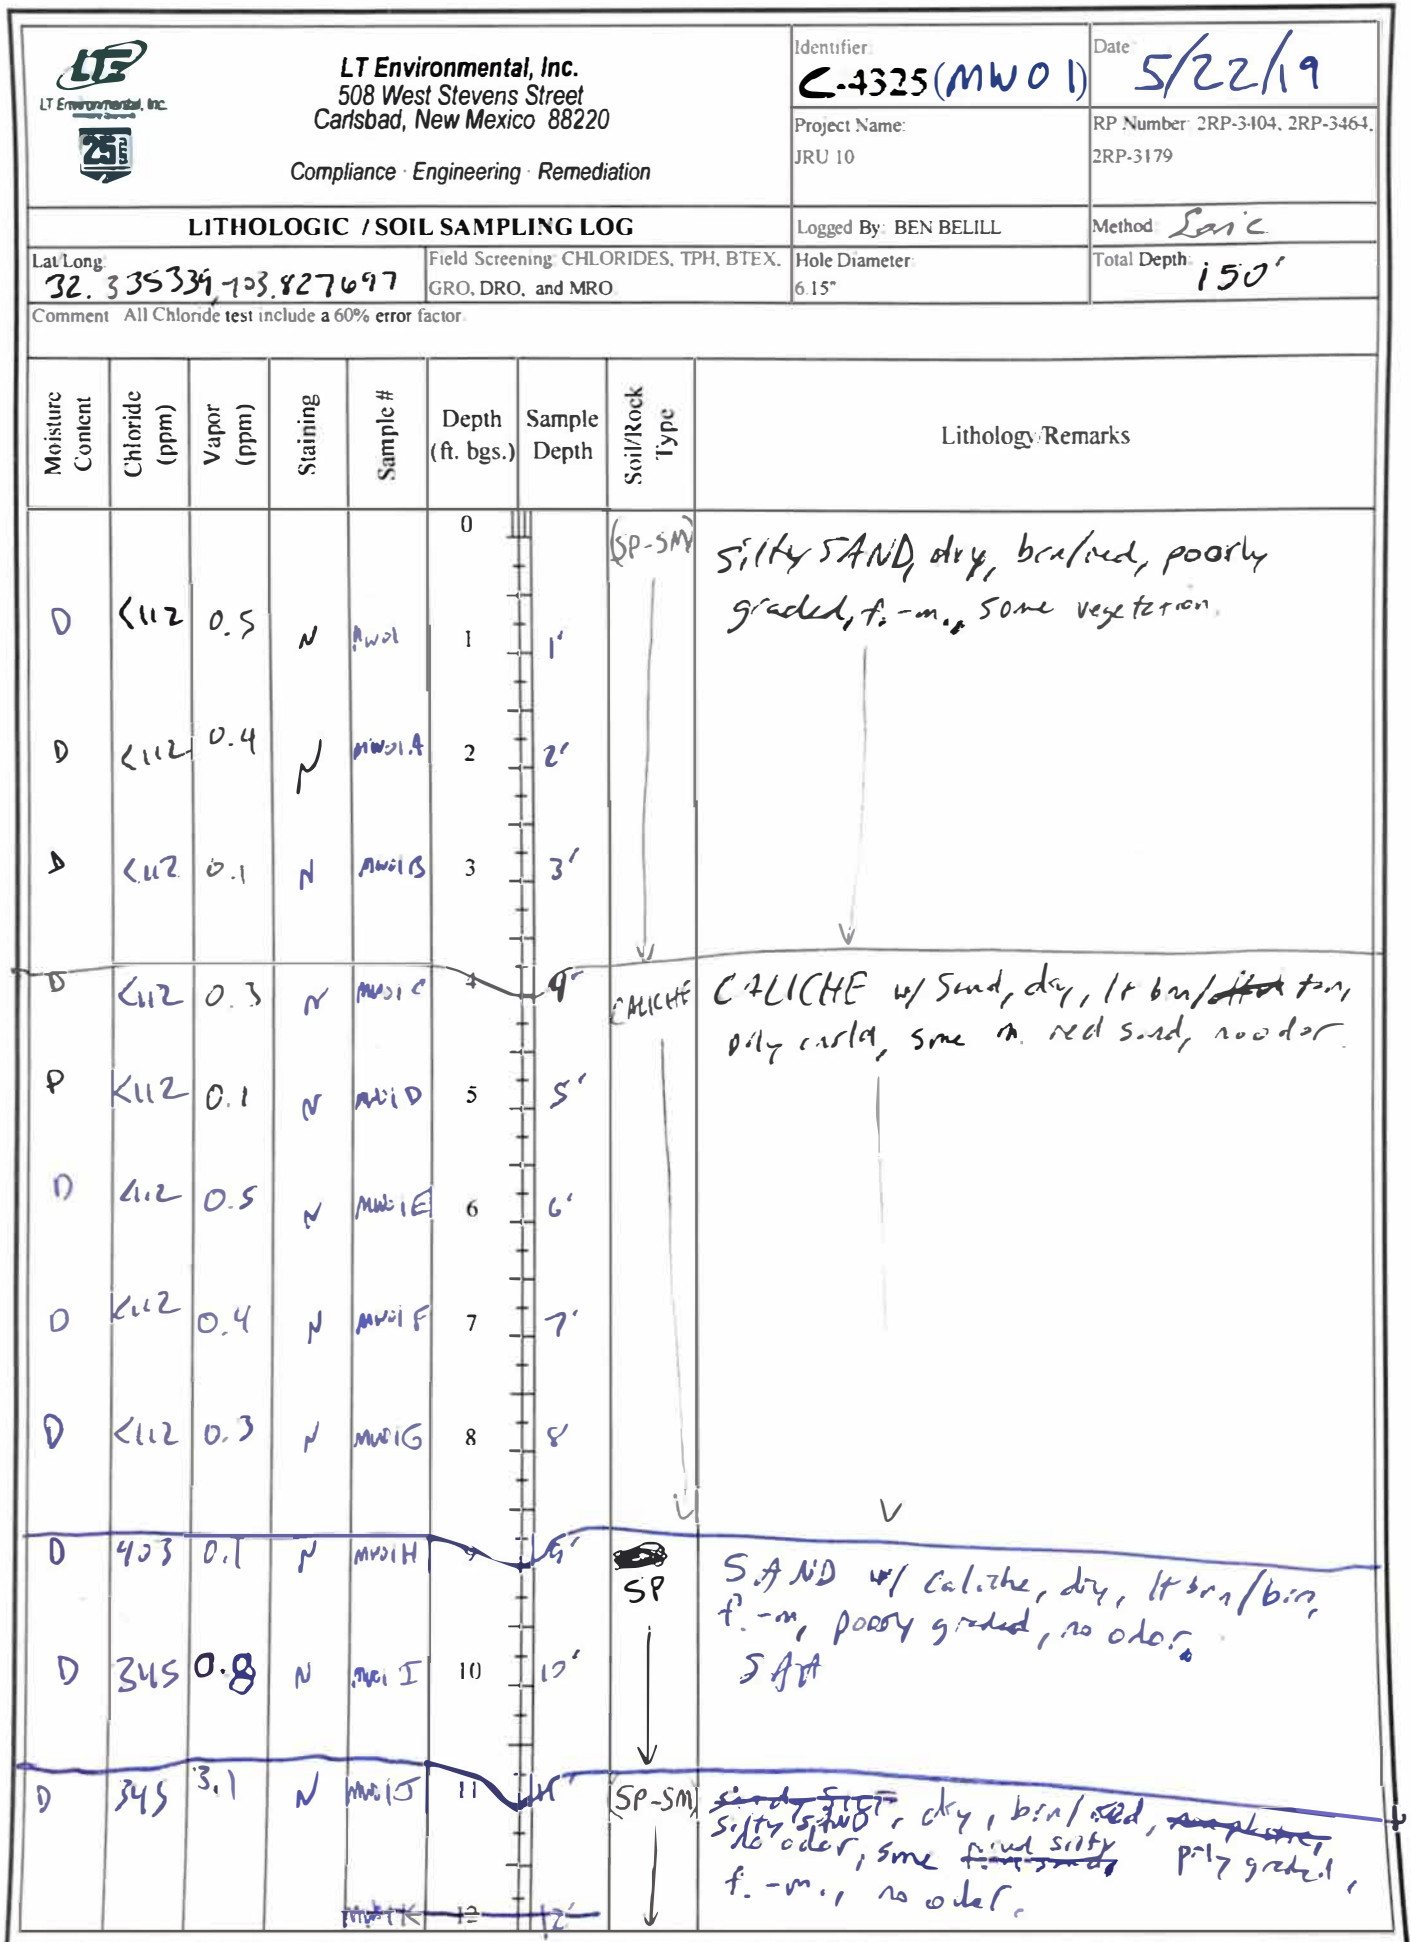 LTE
LT Environmental, Inc.
25
LT Environmental, Inc.
508 West Stevens Street
Carlsbad, New Mexico 88220
Compliance · Engineering · Remediation
Identifier:
C-4325(MW01)
Date
5/22/19
Project Name:
JRU 10
RP Number: 2RP-3404, 2RP-3464,
2RP-3179
LITHOLOGIC / SOIL SAMPLING LOG
Logged By: BEN BELILL
Method: Sonic
Lat/Long:
32.335339,-103.827697
Field Screening: CHLORIDES, TPH, BTEX,
GRO, DRO, and MRO
Hole Diameter:
6.15"
Total Depth:
150'
Comment All Chloride test include a 60% error factor
Moisture Content
Chloride (ppm)
Vapor (ppm)
Staining
Sample #
Depth (ft. bgs.)
Sample Depth
Soil/Rock Type
Lithology/Remarks
0 (SP-SM) Silty SAND, dry, brn/red, poorly
graded, f.-m., some vegetation.
D <112 0.5 N MW01 1 1'
D <112 0.4 N MW01A 2 2'
D <112 0.1 N MW01B 3 3'
D <112 0.3 N MW01C 4 4' CALICHE CALICHE w/ Sand, dry, lt brn/ tan,
some m. red sand, no odor.
D <112 0.1 N MW01D 5 5'
D <112 0.5 N MW01E 6 6'
D <112 0.4 N MW01F 7 7'
D <112 0.3 N MW01G 8 8'
D 403 0.1 N MW01H 9 9' SP SAND w/ Caliche, dry, lt brn/brn,
f.-m, poorly graded, no odor.
D 345 0.8 N MW01I 10 10' SAA
D 345 3.1 N MW01J 11 11' (SP-SM) silty SAND, dry, brn/red,
no odor, some prly graded,
f.-m., no odor.
MW01K 12 12'